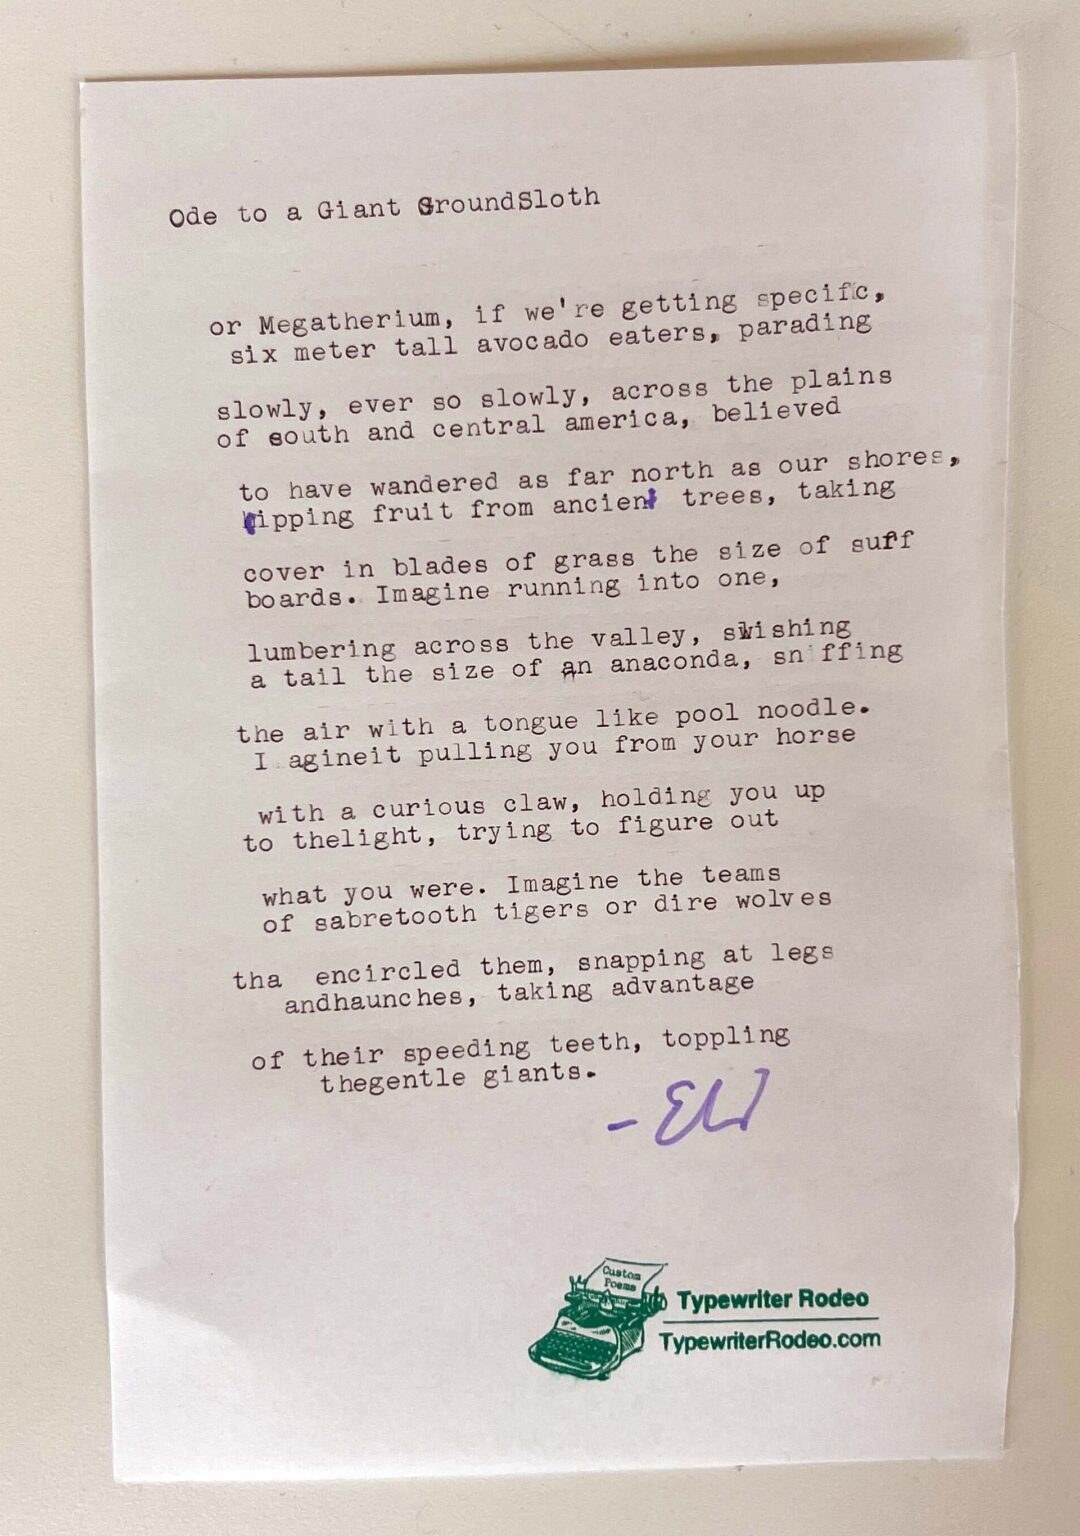 Ode to a Giant GroundSloth
or Megatherium, if we're getting specific,
six meter tall avocado eaters, parading
slowly, ever so slowly, across the plains
of south and central america, believed
to have wandered as far north as our shores,
ripping fruit from ancient trees, taking
cover in blades of grass the size of suff
boards. Imagine running into one,
lumbering across the valley, swishing
a tail the size of an anaconda, sn ffing
the air with a tongue like pool noodle.
I agineit pulling you from your horse
with a curious claw, holding you up
to thelight, trying to figure out
what you were. Imagine the teams
of sabretooth tigers or dire wolves
tha encircled them, snapping at legs
andhaunches, taking advantage
of their speeding teeth, toppling
thegentle giants.
Custom
Poems
Typewriter Rodeo
TypewriterRodeo.com